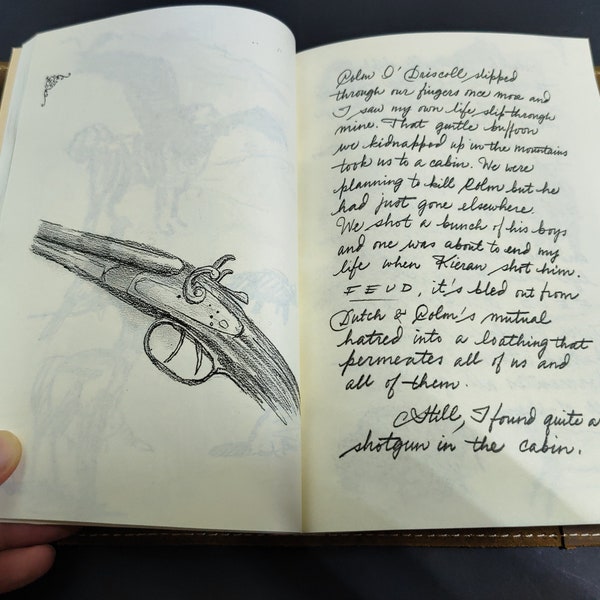 Colm O'Driscoll slipped
through our fingers once more and
I saw my own life slip through
mine. That gutle buffoon
we kidnapped up in the mountains
took us to a cabin. We were
planning to kill Colm but he
had just gone elsewhere.
We shot a bunch of his boys
and one was about to end my
life when Kieran shot him.
FEUD, it's bled out from
Dutch & Colm's mutual
hatred into a loathing that
permeates all of us and
all of them.
Still, I found quite a
shotgun in the cabin.